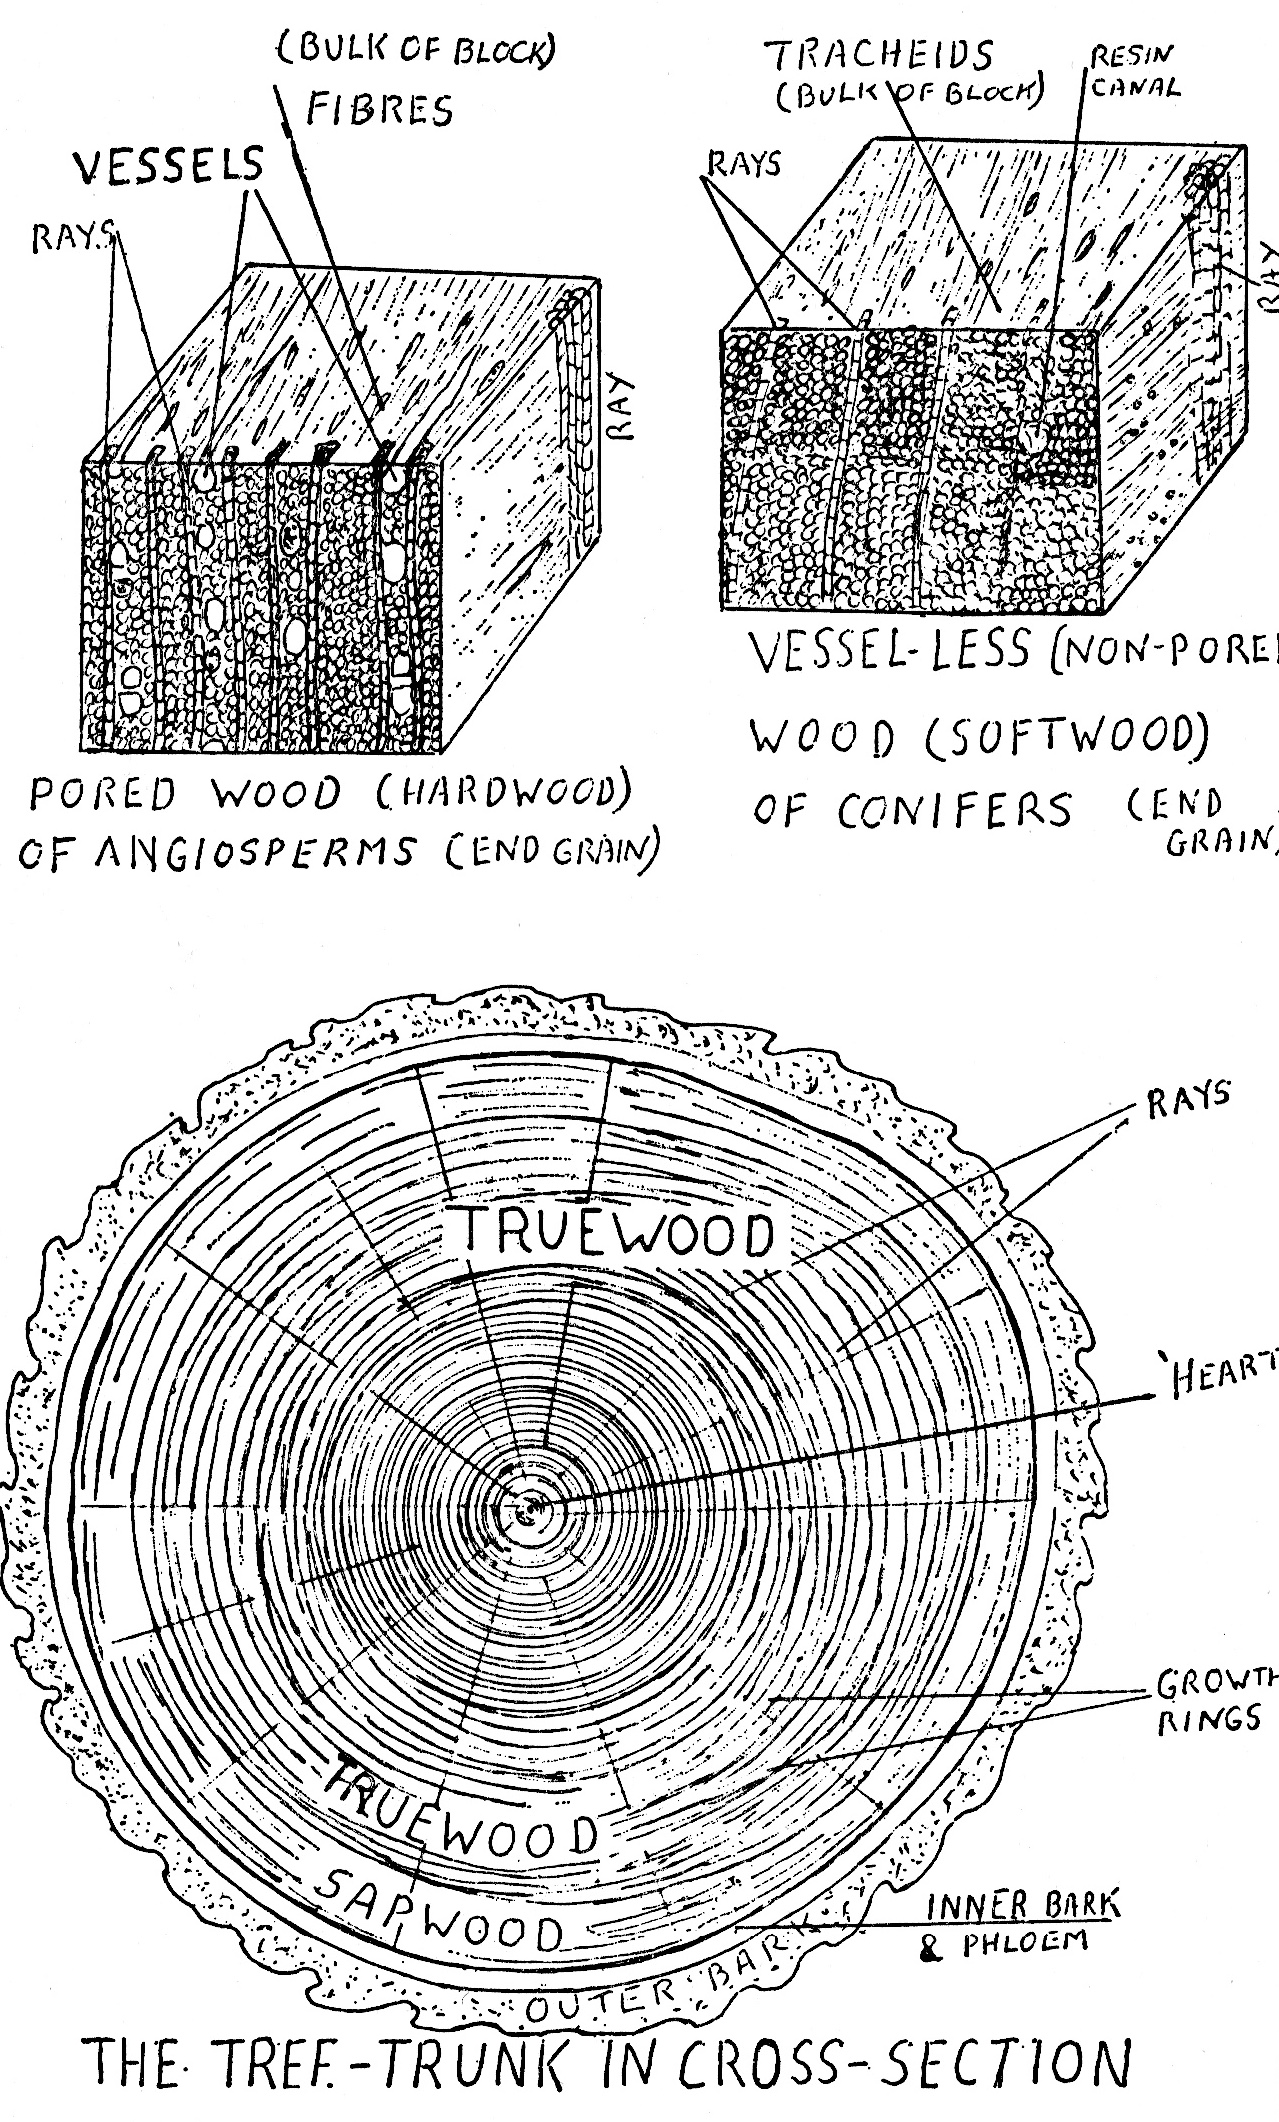 (BULK OF BLOCK)
FIBRES
VESSELS
RAYS
RAY
PORED WOOD (HARDWOOD)
OF ANGIOSPERMS (END GRAIN)
TRACHEIDS
(BULK OF BLOCK)
RESIN
CANAL
RAYS
RAY
VESSEL-LESS (NON-PORE
WOOD (SOFTWOOD)
OF CONIFERS (END
GRAIN)
RAYS
TRUEWOOD
'HEART
GROWTH
RINGS
TRUEWOOD
SAPWOOD
INNER BARK
& PHLOEM
OUTER BARK
THE TREE-TRUNK IN CROSS-SECTION